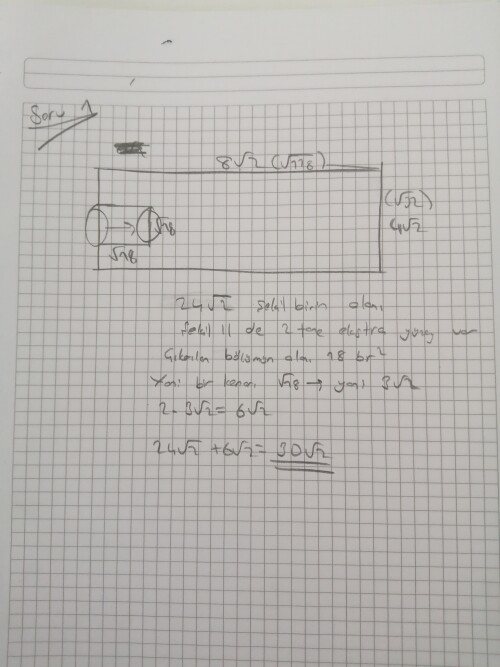 Soru 1
8√2 (√128)
(√32)
4√2
√18
√18
24√2 Şekil birin alanı
Şekil II de 2 tane ekstra yüzey var
Çıkarılan bölümün alanı 18 br²
Yani bir kenarı √18 → yani 3√2
2 - 3√2 = 6√2
24√2 + 6√2 = 30√2